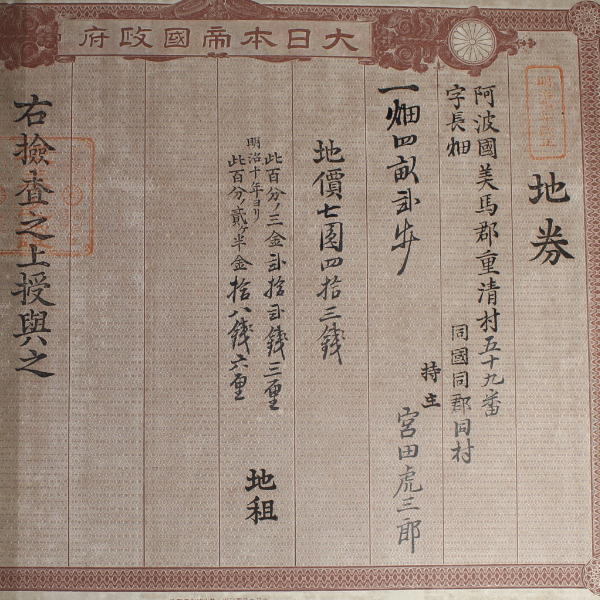 大日本帝國政府
地券
阿波國美馬郡重清村五十九番
字長畑
同國同郡同村
一畑四畝弐歩
持主
宮田虎三郎
地價七圓四拾三錢
此百分ノ三金弐拾弐錢三厘
明治十年ヨリ
此百分ノ貳ヶ半金拾八錢六厘
地租
右檢査之上授與之